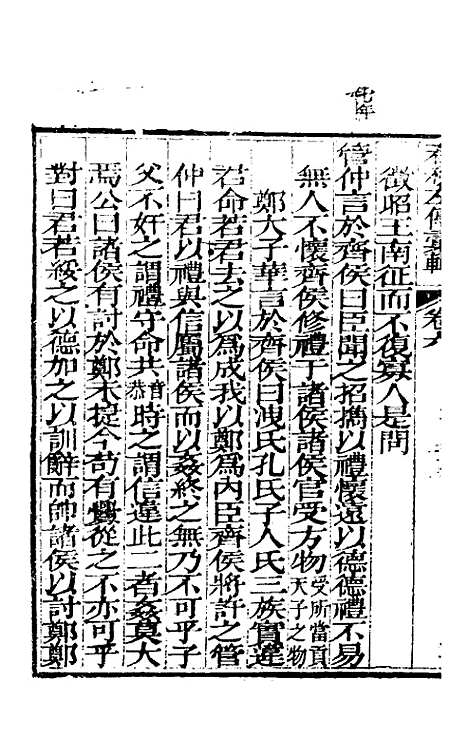 七年
春秋左傳彙輯 卷六
徵昭王南征而不復寡人是問
管仲言於齊侯曰臣聞之招擕以禮懷遠以德德禮不易
無人不懷齊侯修禮于諸侯諸侯官受方物受所當貢天子之物
鄭大子華言於齊侯曰洩氏孔氏子人氏三族實違
君命若君去之以爲成我以鄭爲內臣齊侯將許之管
仲曰君以禮與信屬諸侯而以姦終之無乃不可乎子
父不奸之謂禮守命共音恭時之謂信違此二者姦莫大
焉公曰諸侯有討於鄭未捷今苟有釁從之不亦可乎
對曰君若綏之以德加之以訓辭而帥諸侯以討鄭鄭